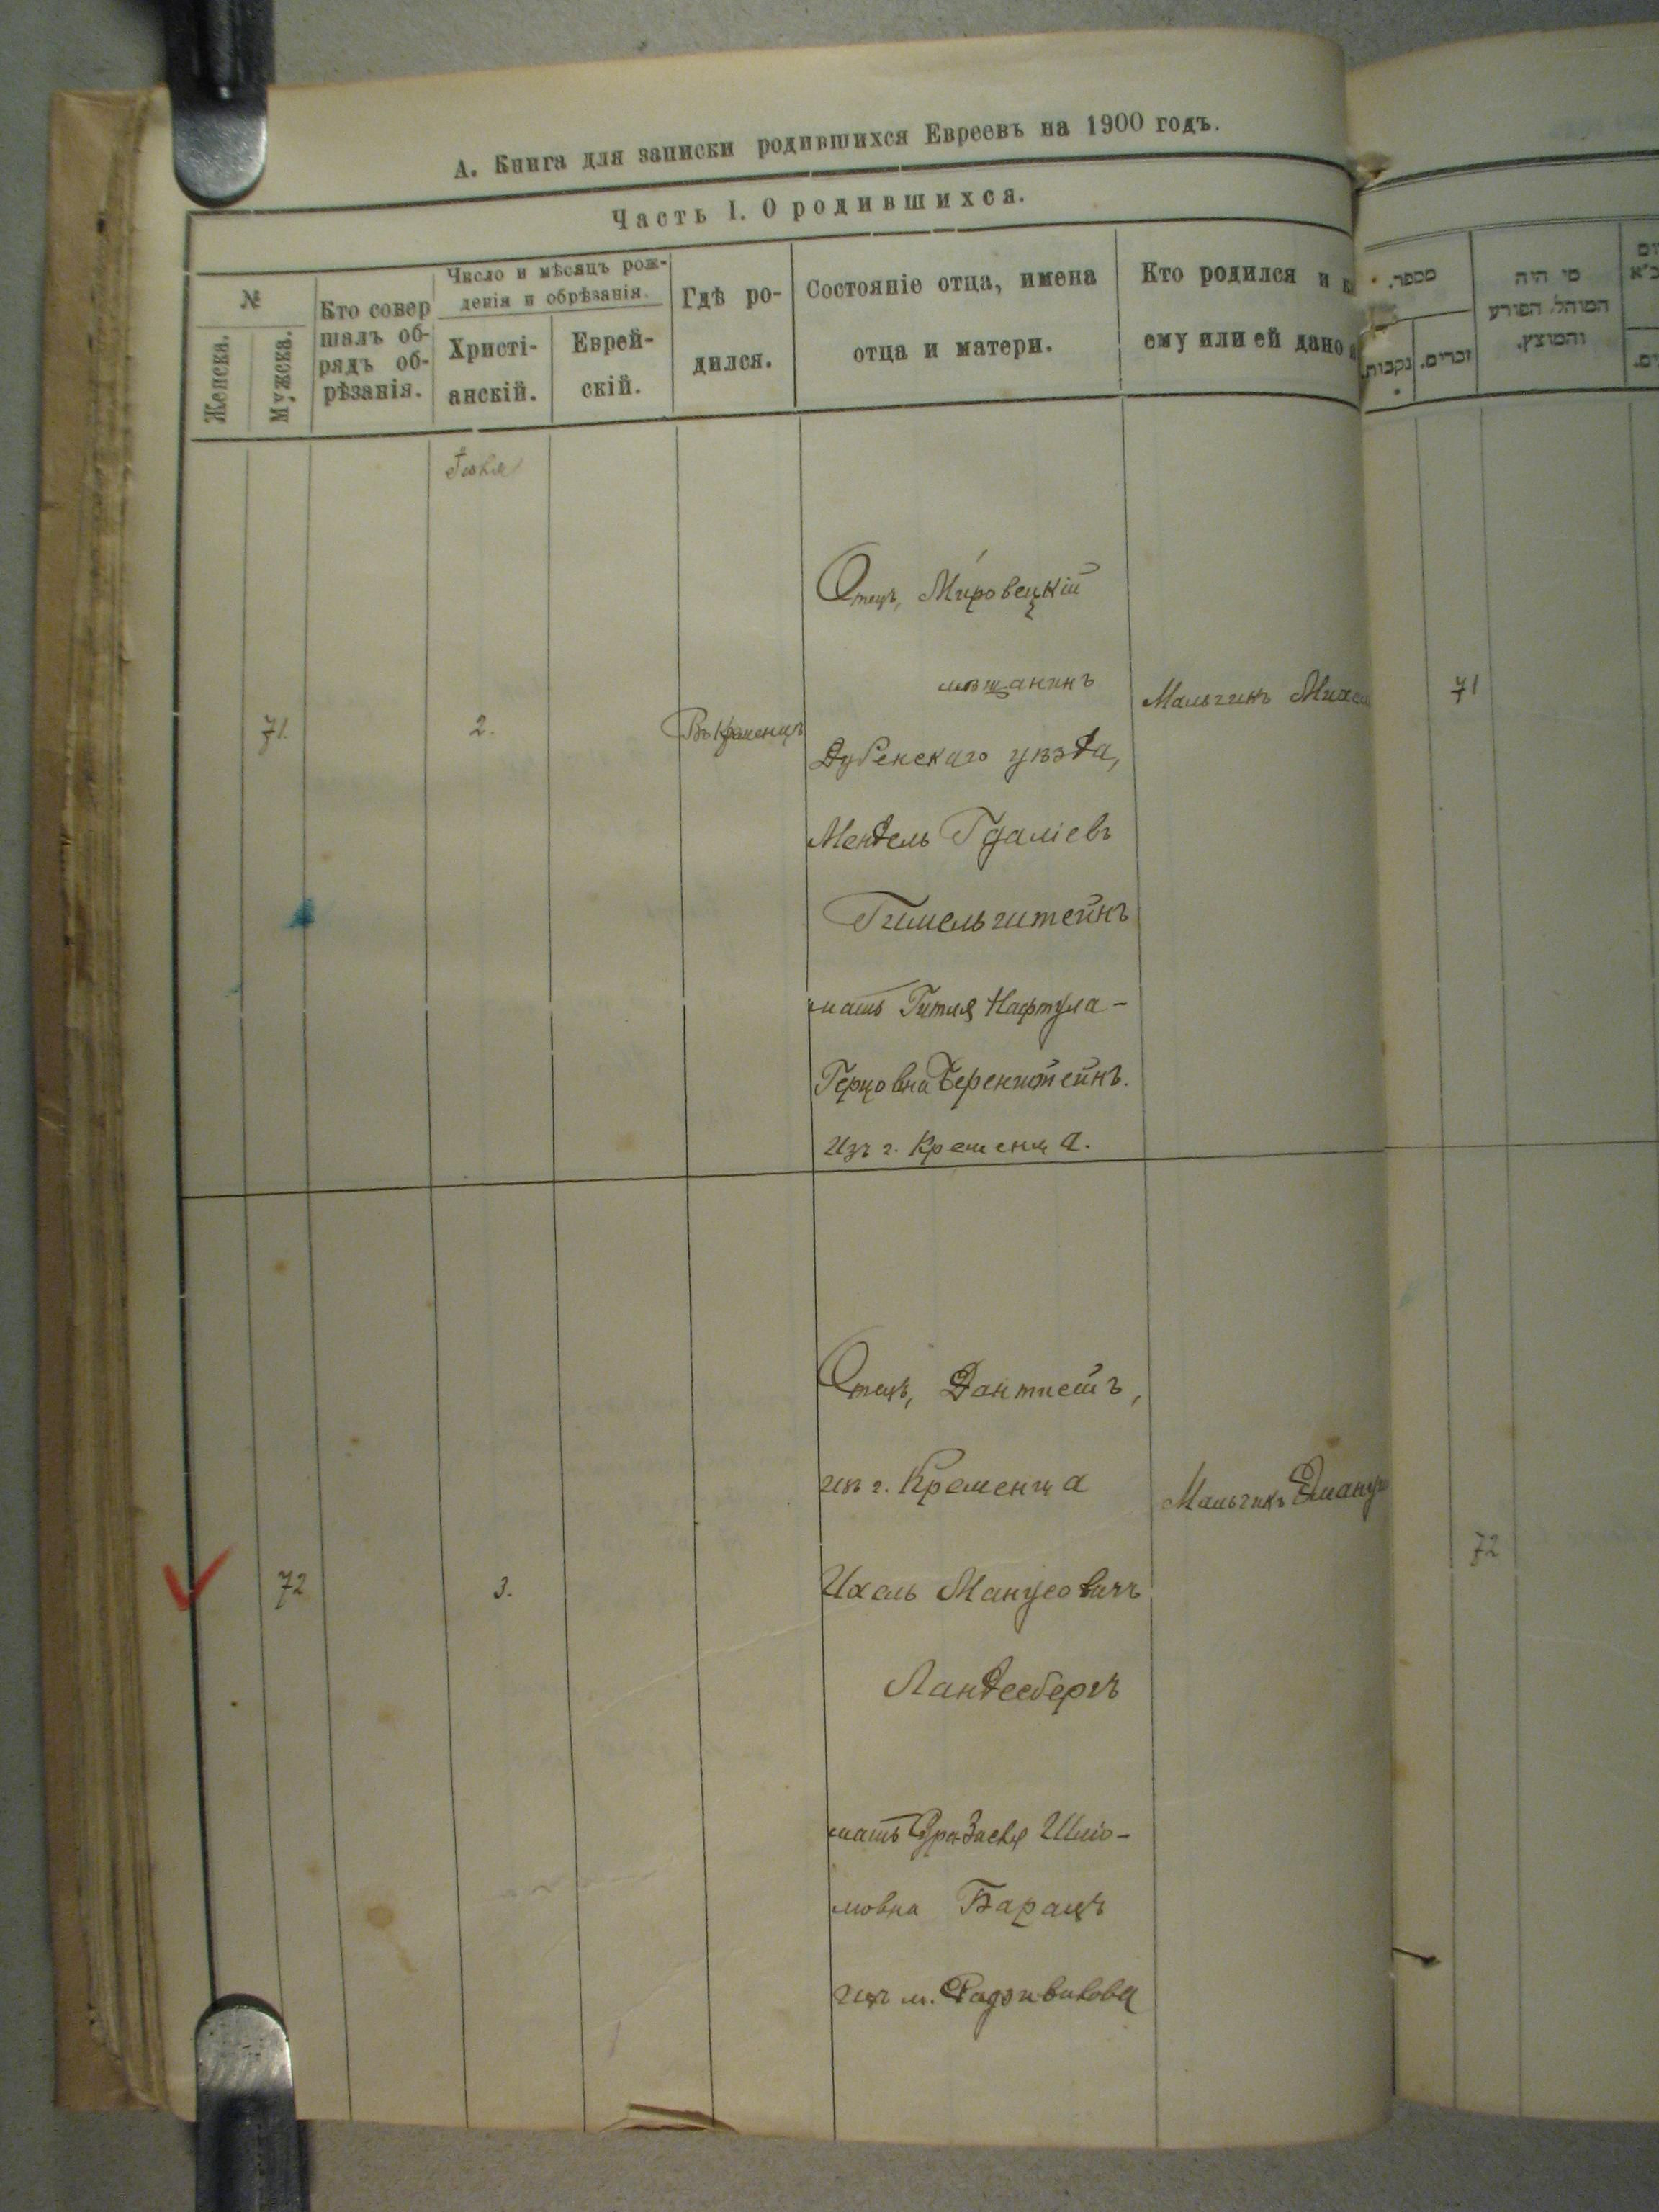 А. Книга для записки родившихся Евреевъ на 1900 годъ.
Часть I. О родившихся.
№
Женска.
Мужска.
Кто совер
шалъ об-
рядъ об-
рѣзанія.
Число и мѣсяцъ рож-
денія и обрѣзанія.
Христі-
анскій.
Еврей-
скій.
Гдѣ ро-
дился.
Состояніе отца, имена
отца и матери.
Кто родился и
ему или ей дано
מספר.
נקבות.
זכרים.
מי היה
המוהל, הפורע
והמוצץ.
Іюня
71.
2.
Въ Кременцѣ
Отецъ, Мировецкій
мѣщанинъ
Дубенскаго уѣзда,
Мендель Гдаліевъ
Гимельштейнъ
мать Гитля Нафтула-
Герцовна Беренштейнъ.
Изъ г. Кременца.
Мальчикъ
71
72
3.
Отецъ, Дантистъ,
изъ г. Кременца
Ихель Манусовичъ
Ландесбергъ
мать Шлио-
мовна Барацъ
изъ м. Радзивилова
Мальчикъ Эмануи
72